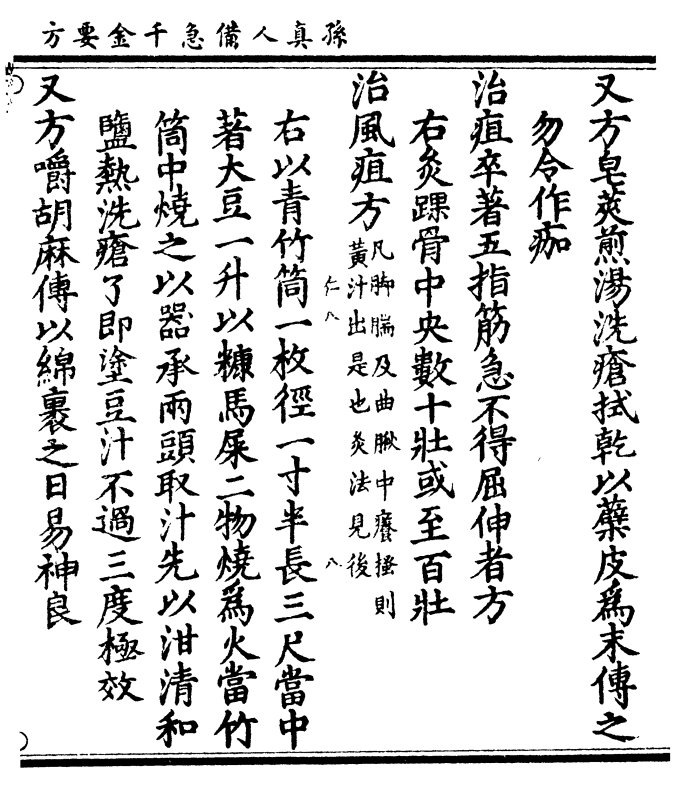 孫真人備急千金要方
又方皂莢煎湯洗瘡拭乾以蘗皮為末傅之
勿令作痂
治疽卒著五指筋急不得屈伸者方
右灸踝骨中央數十壯或至百壯
治風疽方凡脚腨及曲䐐中癢搔則
黃汁出是也灸法見後
右以青竹筒一枚徑一寸半長三尺當中
著大豆一升以糠馬屎二物燒為火當竹
筒中燒之以器承兩頭取汁先以泔清和
鹽熱洗瘡了即塗豆汁不過三度極效
又方嚼胡麻傅以綿裹之日易神良